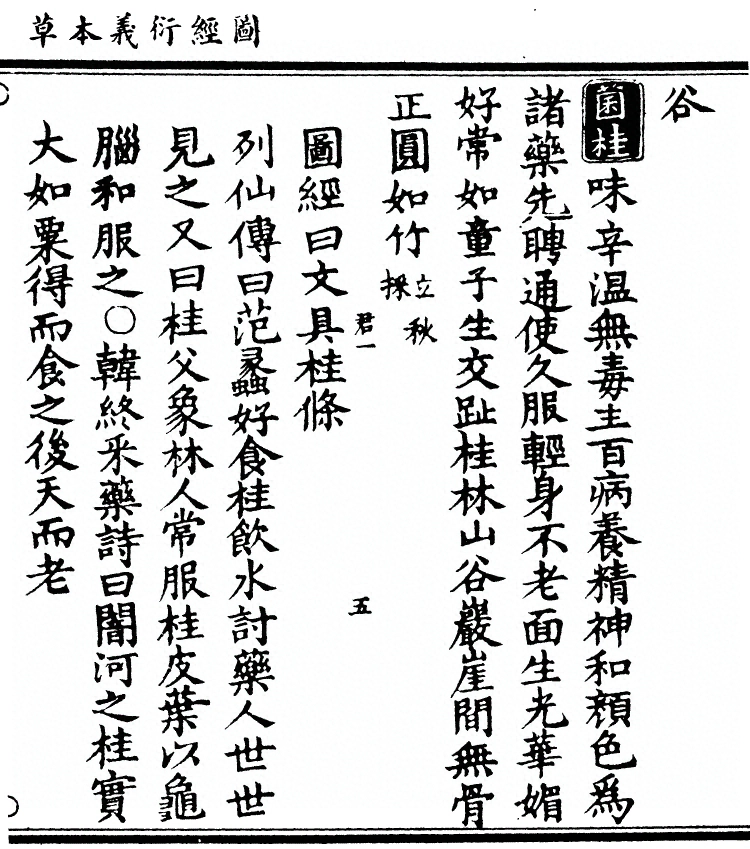 圖經衍義本草
谷
菌桂味辛溫無毒主百病養精神和顏色爲
諸藥先聘通使久服輕身不老面生光華媚
好常如童子生交趾桂林山谷巖崖間無骨
正圓如竹立秋採
君一
圖經曰文具桂條
五
列仙傳曰范蠡好食桂飲水討藥人世世
見之又曰桂父象林人常服桂皮葉以龜
腦和服之○韓終采藥詩曰闇河之桂實
大如粟得而食之後天而老